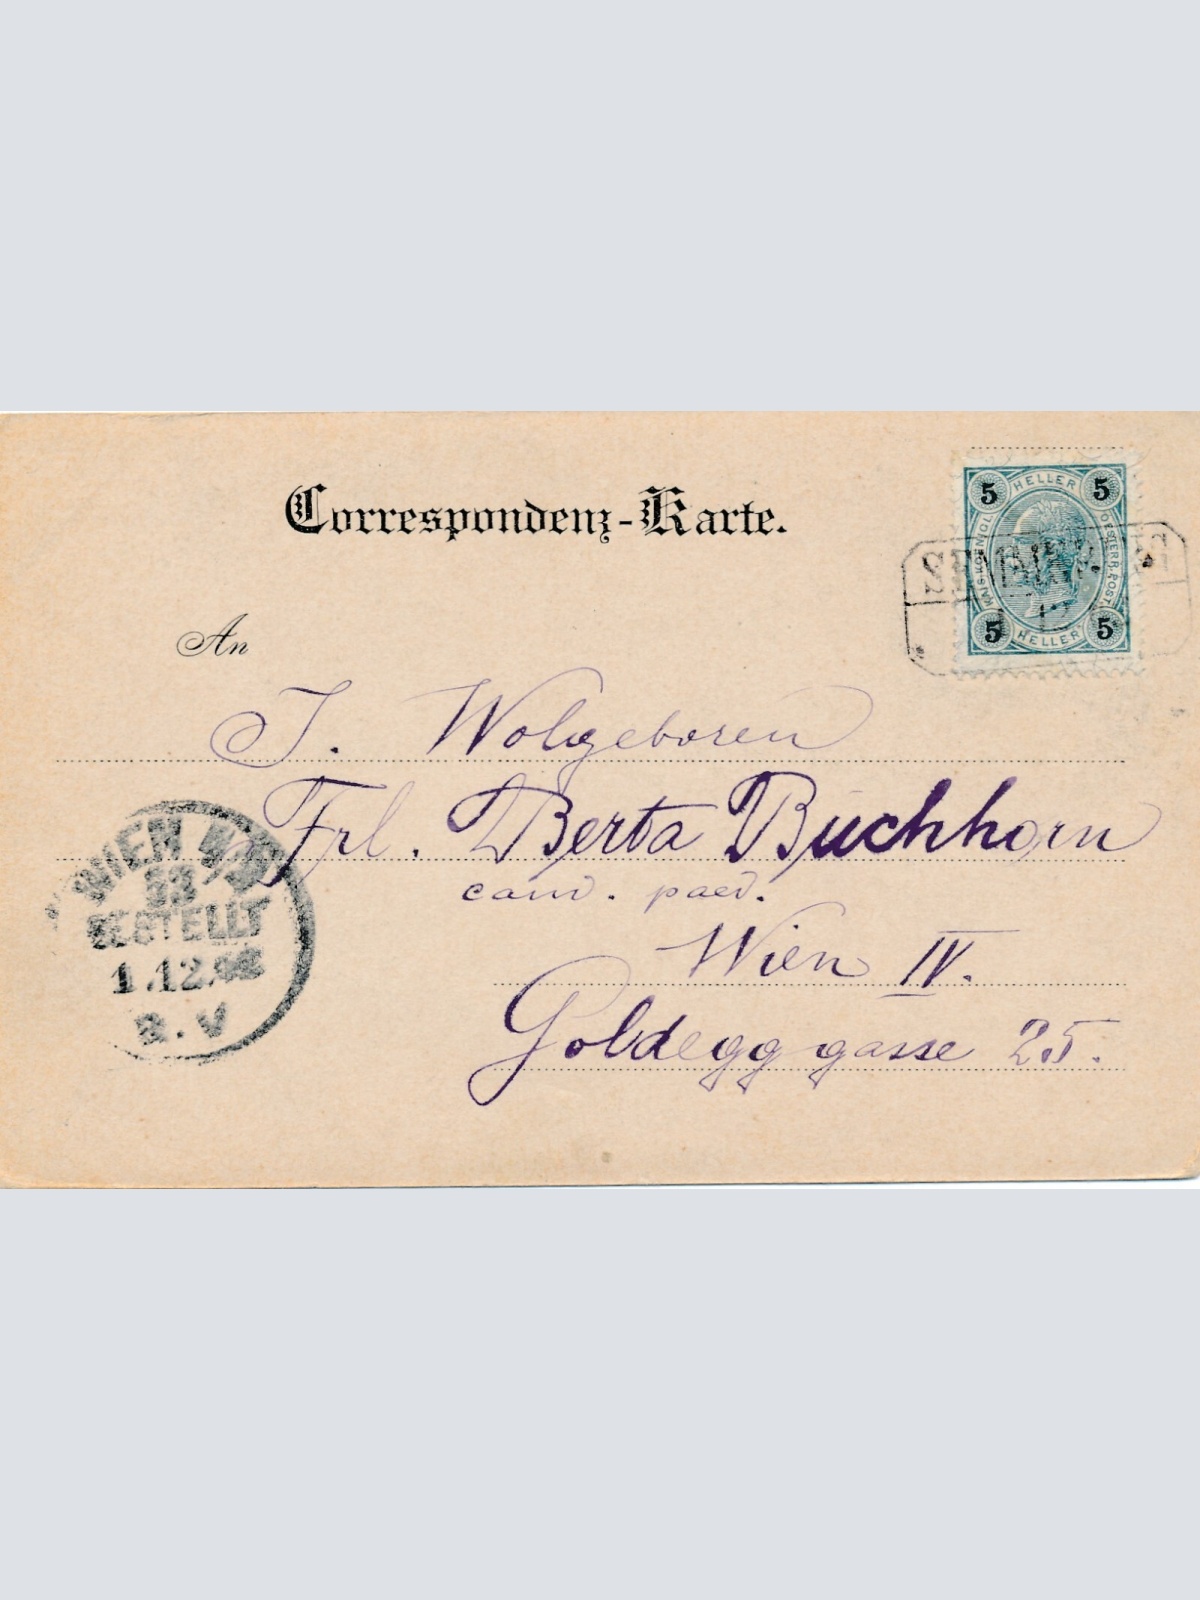 Correspondenz-Karte.
5 HELLER 5
KAIS. KOENIGL. OESTERR. POST.
5 HELLER 5
An
I. Wolgeboren
Frl. Berta Buchhorn
cand. paed.
Wien IV.
Goldegg gasse 25.
WIEN
BESTELLT
1.12.
V